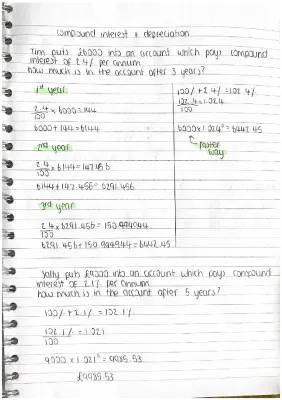 compound interest & depreciation
Tim puts £6000 into an account which pays compound
interest of 2.4% per annum.
how much is in the account after 3 years?
1st year
2.4/100 x 6000 = 144
6000 + 144 = 6144
2nd year
2.4/100 x 6144 = 147.456
6144 + 147.456 = 6291.456
3rd year
2.4/100 x 6291.456 = 150.994944
6291.456 + 150.994944 = 6442.45
100% + 2.4% = 102.4%
102.4/100 = 1.024
6000 x 1.024³ = 6442.45
faster
way
Sally puts £9000 into an account which pays compound
interest of 2.1% per annum.
how much is in the account after 5 years?
100% + 2.1% = 102.1%
102.1%/100 = 1.021
9000 x 1.021⁵ = 9985.53
£9985.53